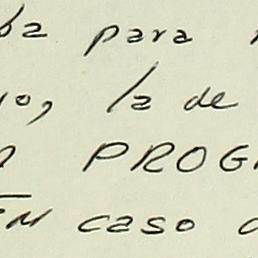 ba para
o, la de
A PROG
EN caso